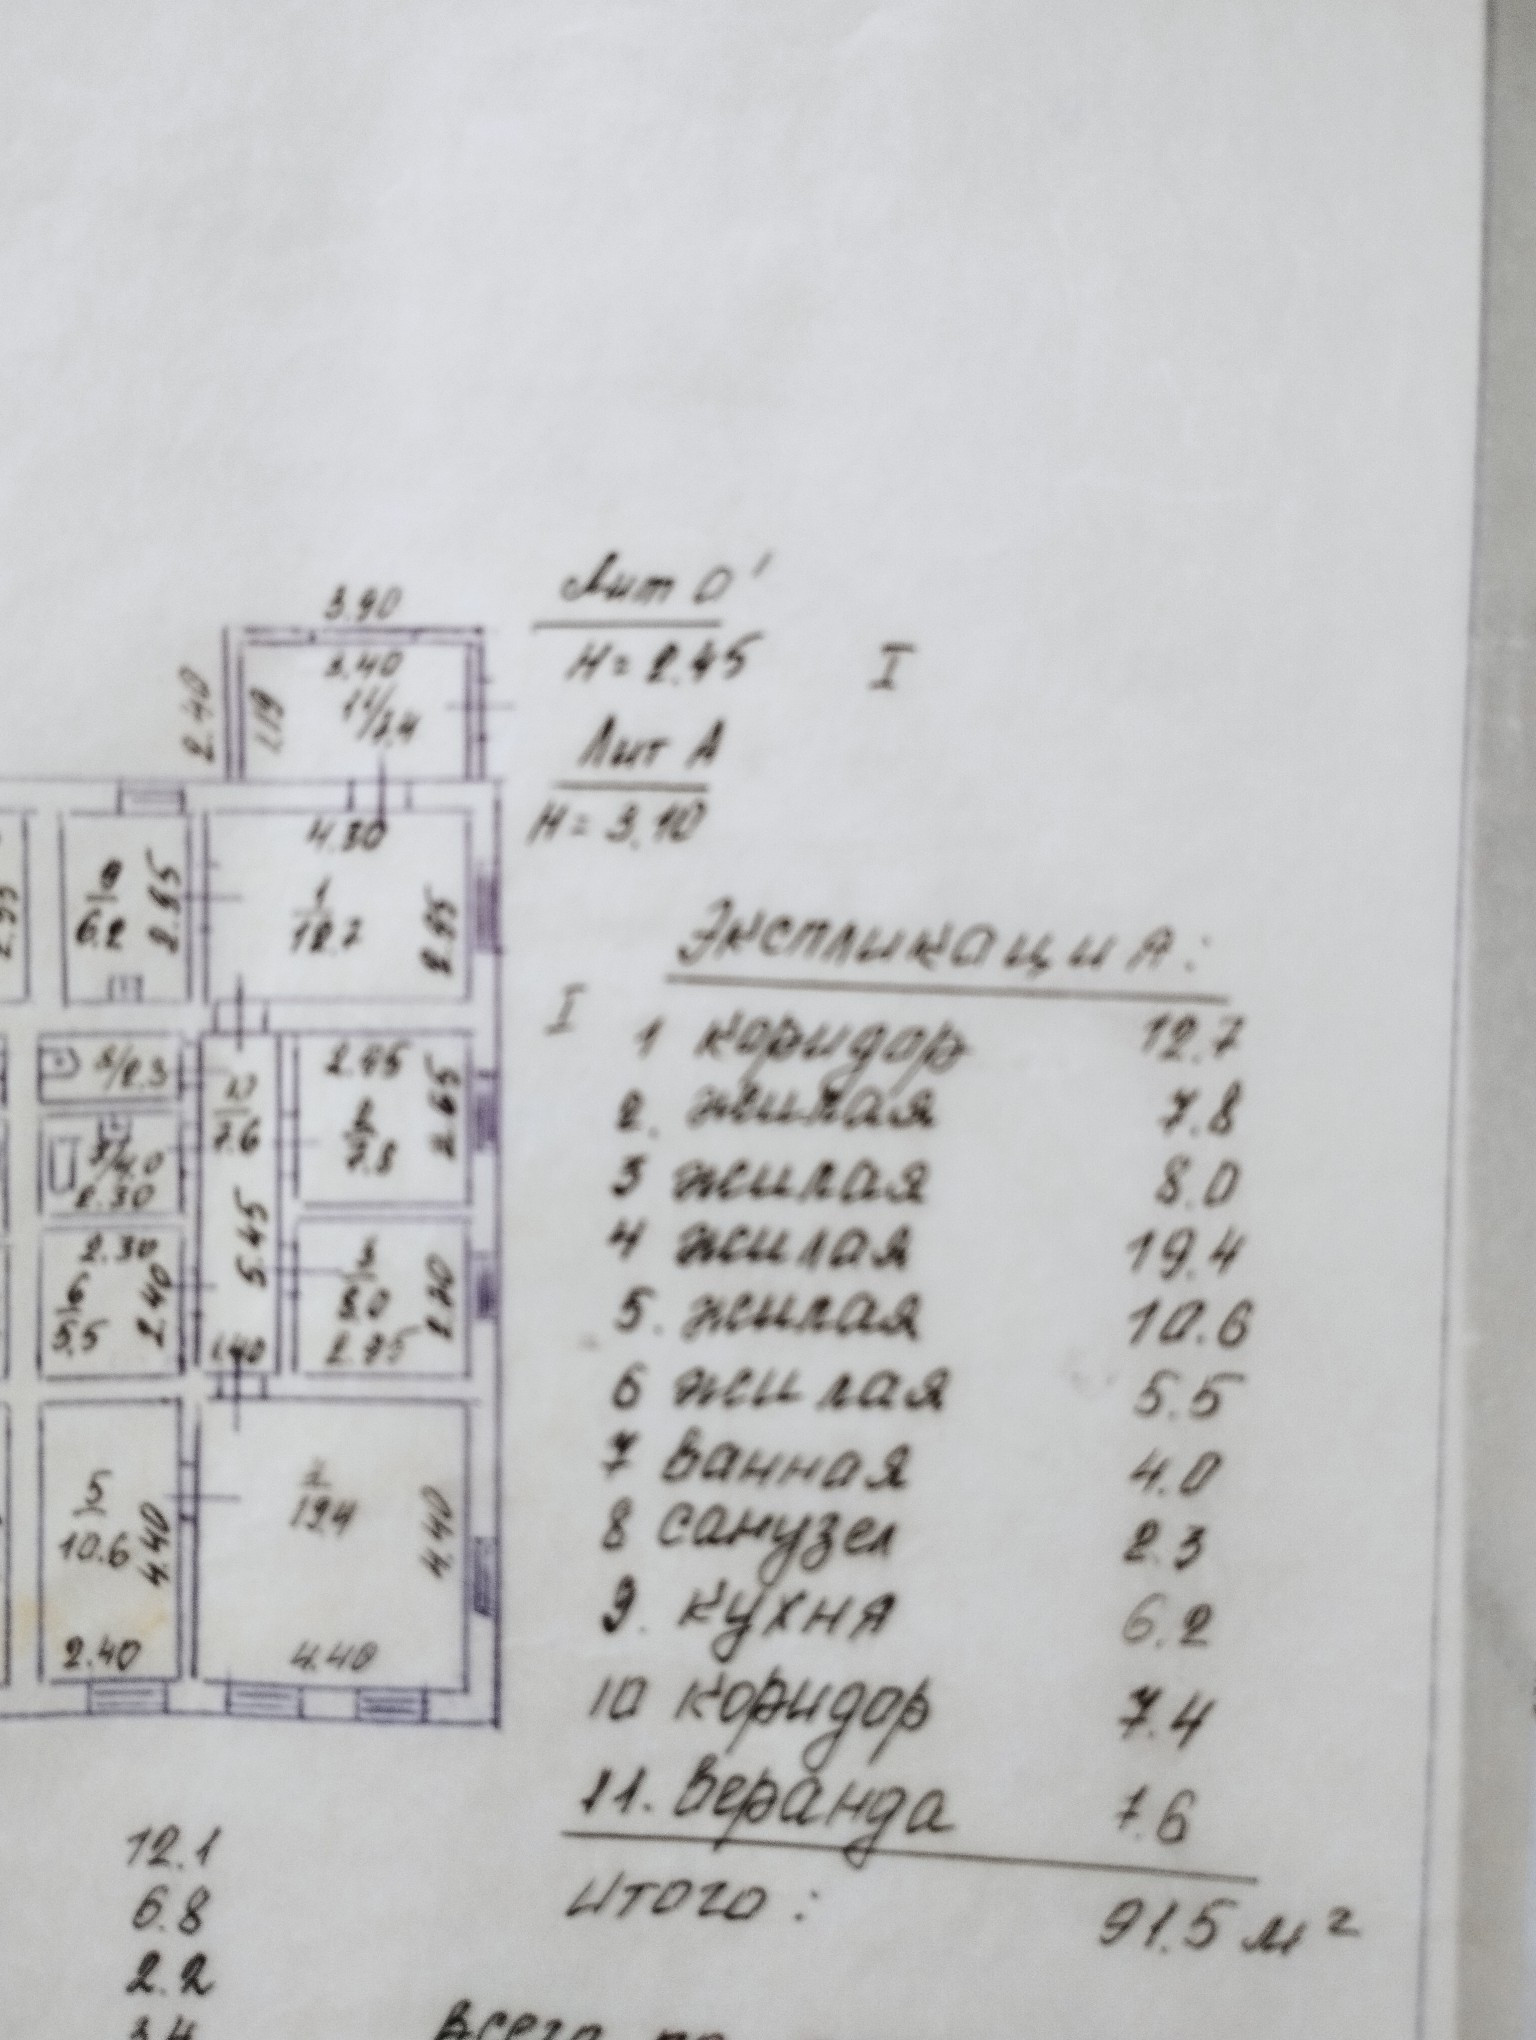 3.90
Лит О'
3.40
Н = 2.45
I
2.40
11/7.4
Лит А
Н = 3.10
4.30
9
6.2
2.95
1
12.7
2.95
Экспликация:
I
1 коридор 12.7
2. жилая 7.8
3 жилая 8.0
4 жилая 19.4
5. жилая 10.6
6 жилая 5.5
7 ванная 4.0
8 санузел 2.3
9. кухня 6.2
10 коридор 7.4
11. веранда 7.6
итого: 91.5 м²
8/2.3
2.95
2.65
10
7.6
2
7.8
7/4.0
2.30
2.30
5.45
6
5.5
2.40
3
8.0
2.95
1.40
5
10.6
4.40
19.4
4.40
2.40
4.40
12.1
6.8
2.2
3.4
Всего по